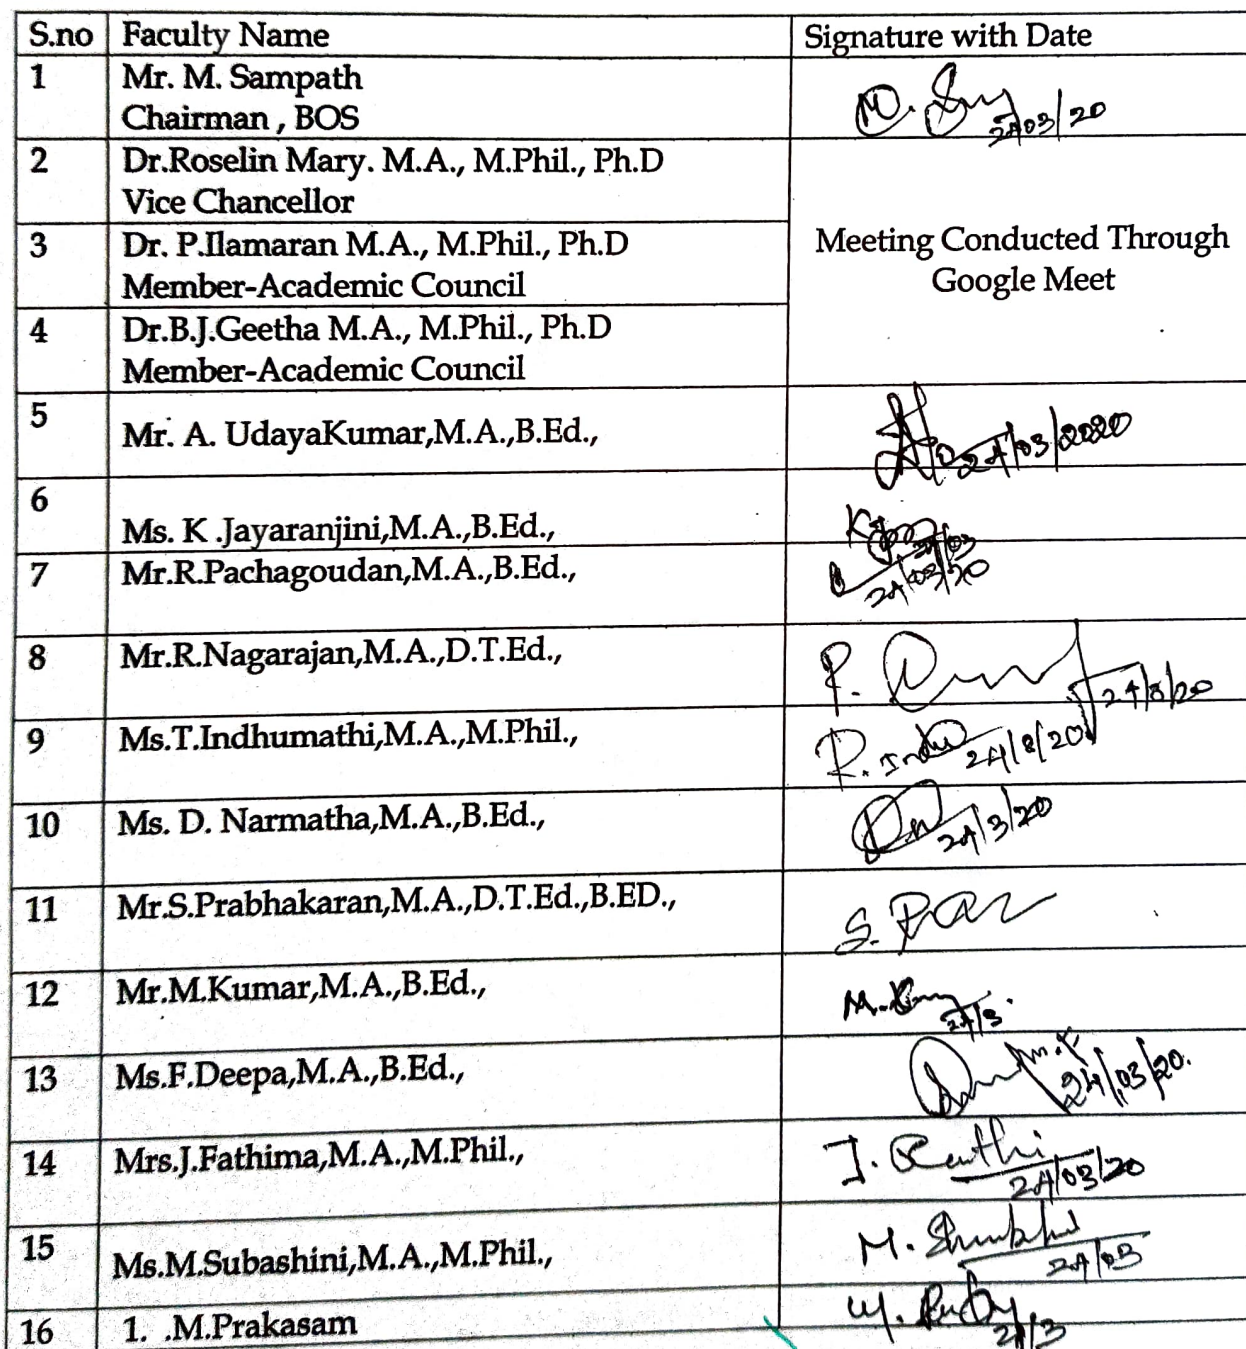 S.no Faculty Name Signature with Date
1 Mr. M. Sampath
Chairman , BOS
M. 24/03/20
2 Dr.Roselin Mary. M.A., M.Phil., Ph.D
Vice Chancellor
3 Dr. P.Ilamaran M.A., M.Phil., Ph.D
Member-Academic Council
Meeting Conducted Through
Google Meet
4 Dr.B.J.Geetha M.A., M.Phil., Ph.D
Member-Academic Council
5 Mr. A. UdayaKumar,M.A.,B.Ed.,
24/03/2020
6 Ms. K .Jayaranjini,M.A.,B.Ed.,
24/03
7 Mr.R.Pachagoudan,M.A.,B.Ed.,
24/03/20
8 Mr.R.Nagarajan,M.A.,D.T.Ed.,
24/3/20
9 Ms.T.Indhumathi,M.A.,M.Phil.,
24/3/20
10 Ms. D. Narmatha,M.A.,B.Ed.,
24/3/20
11 Mr.S.Prabhakaran,M.A.,D.T.Ed.,B.ED.,
S.
12 Mr.M.Kumar,M.A.,B.Ed.,
M. 24/3.
13 Ms.F.Deepa,M.A.,B.Ed.,
24/03/20.
14 Mrs.J.Fathima,M.A.,M.Phil.,
J. 24/03/20
15 Ms.M.Subashini,M.A.,M.Phil.,
M. 24/03
16 1. .M.Prakasam
24/3